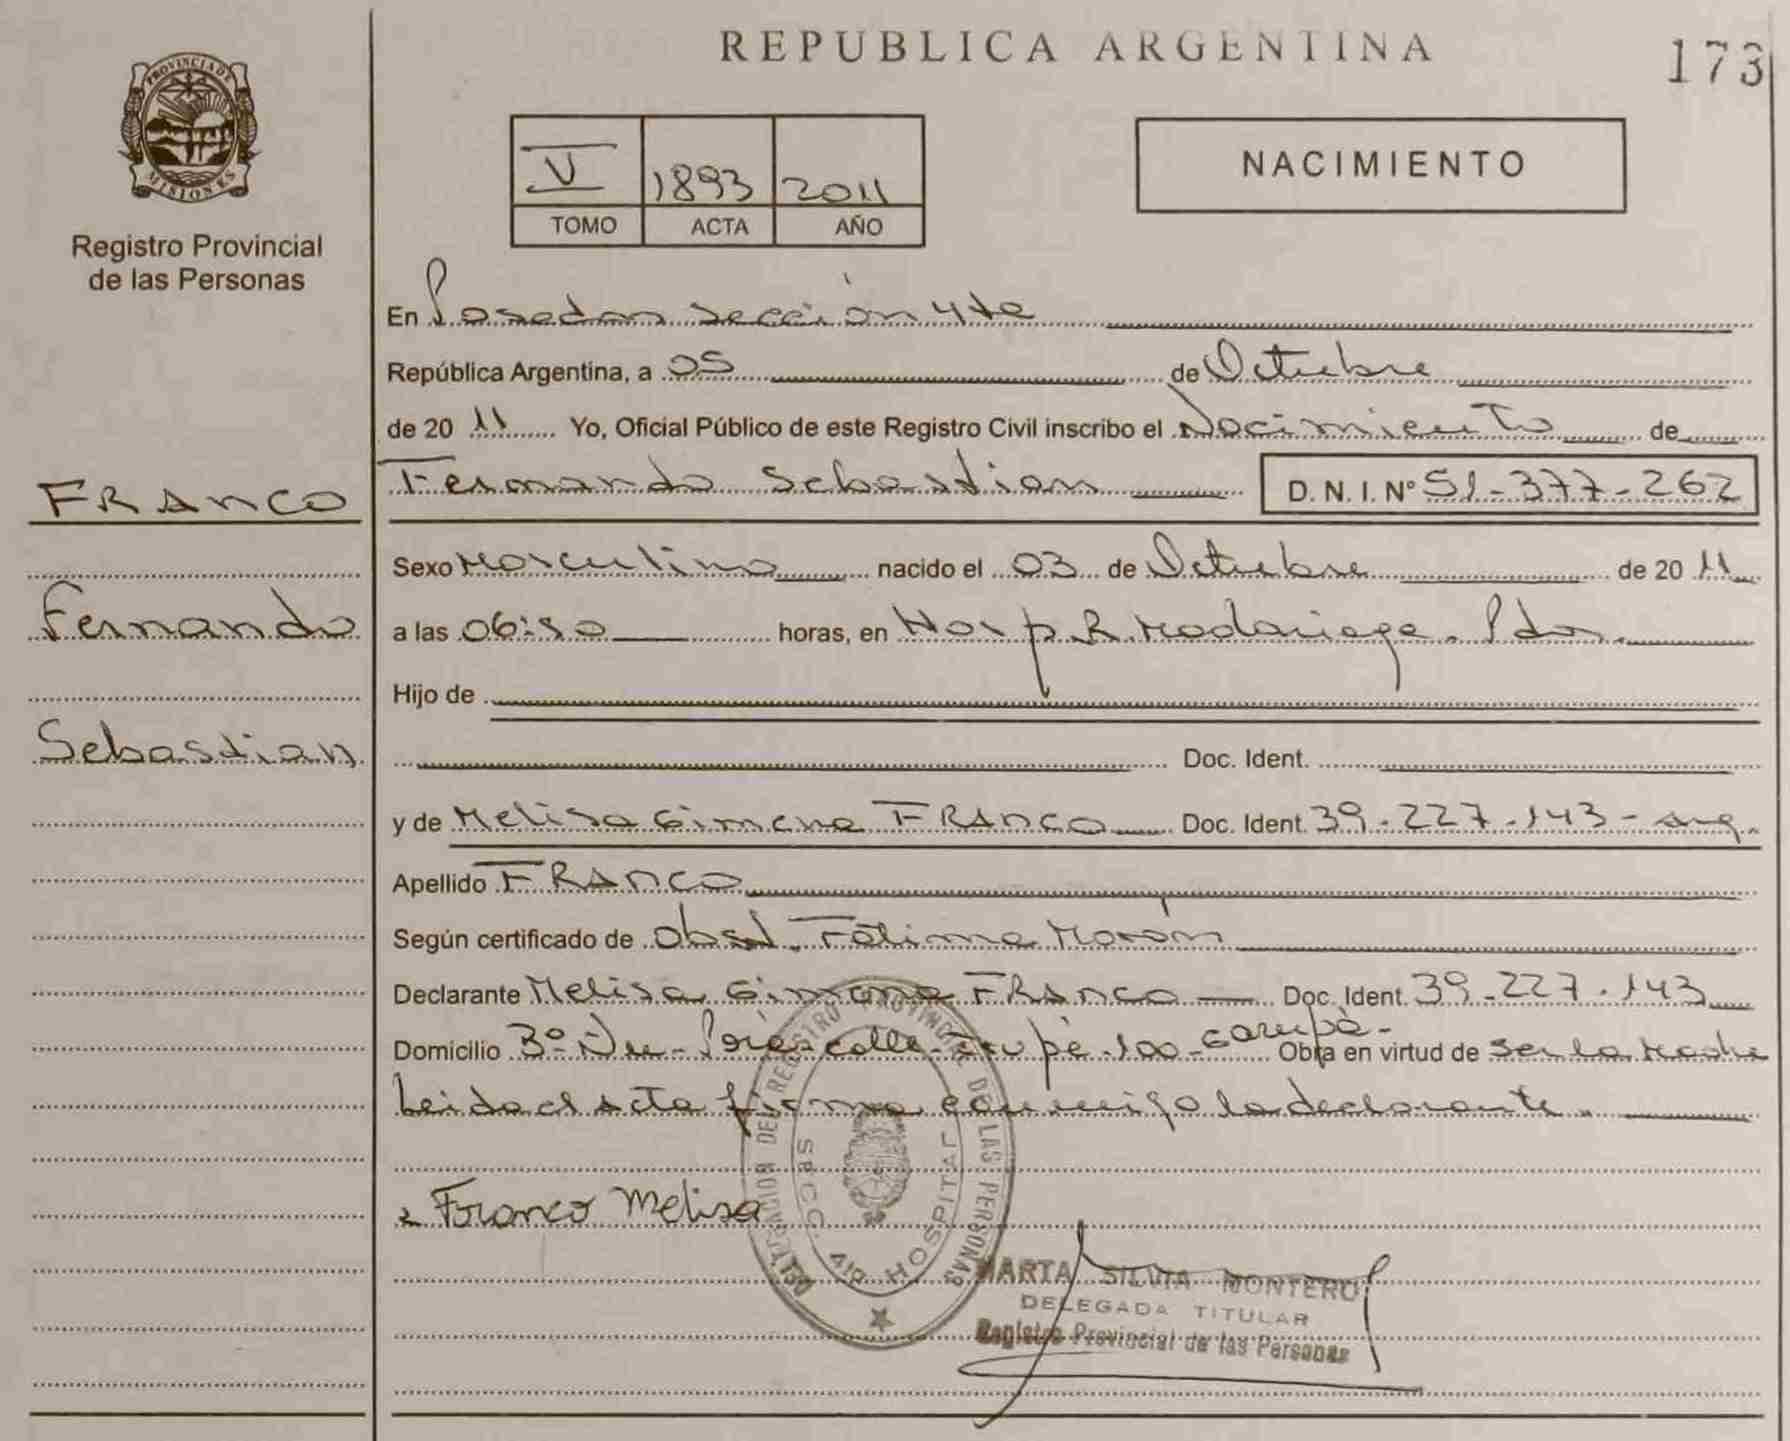 REPUBLICA ARGENTINA
173
PROVINCIA DE
MISIONES
Registro Provincial
de las Personas
V 1893 2011
TOMO ACTA AÑO
NACIMIENTO
En Posadas Sección 4ta
República Argentina, a 05 de Octubre
de 2011 Yo, Oficial Público de este Registro Civil inscribo el Nacimiento de
Fernando Sebastian D.N.I. Nº 51-377-262
FRANCO
Fernando
Sebastian
Sexo Masculino nacido el 03 de Octubre de 2011
a las 06: horas, en Hosp. R. Madariaga. Pdas.
Hijo de
Doc. Ident.
y de Melisa Gimena FRANCO Doc. Ident. 39.227.143 - arg.
Apellido FRANCO
Según certificado de Obst. Fatima Morán
Declarante Melisa Gimena FRANCO Doc. Ident. 39.227.143
Domicilio calle 100 - Garupá - Obra en virtud de ser la Madre
Leida el acta firma conmigo la declarante.
Franco Melisa
DELEGACION DEL REGISTRO PROVINCIAL DE LAS PERSONAS
SECC. 4ta HOSPITAL
MARTA SILVIA MONTERO
DELEGADA TITULAR
Registro Provincial de las Personas